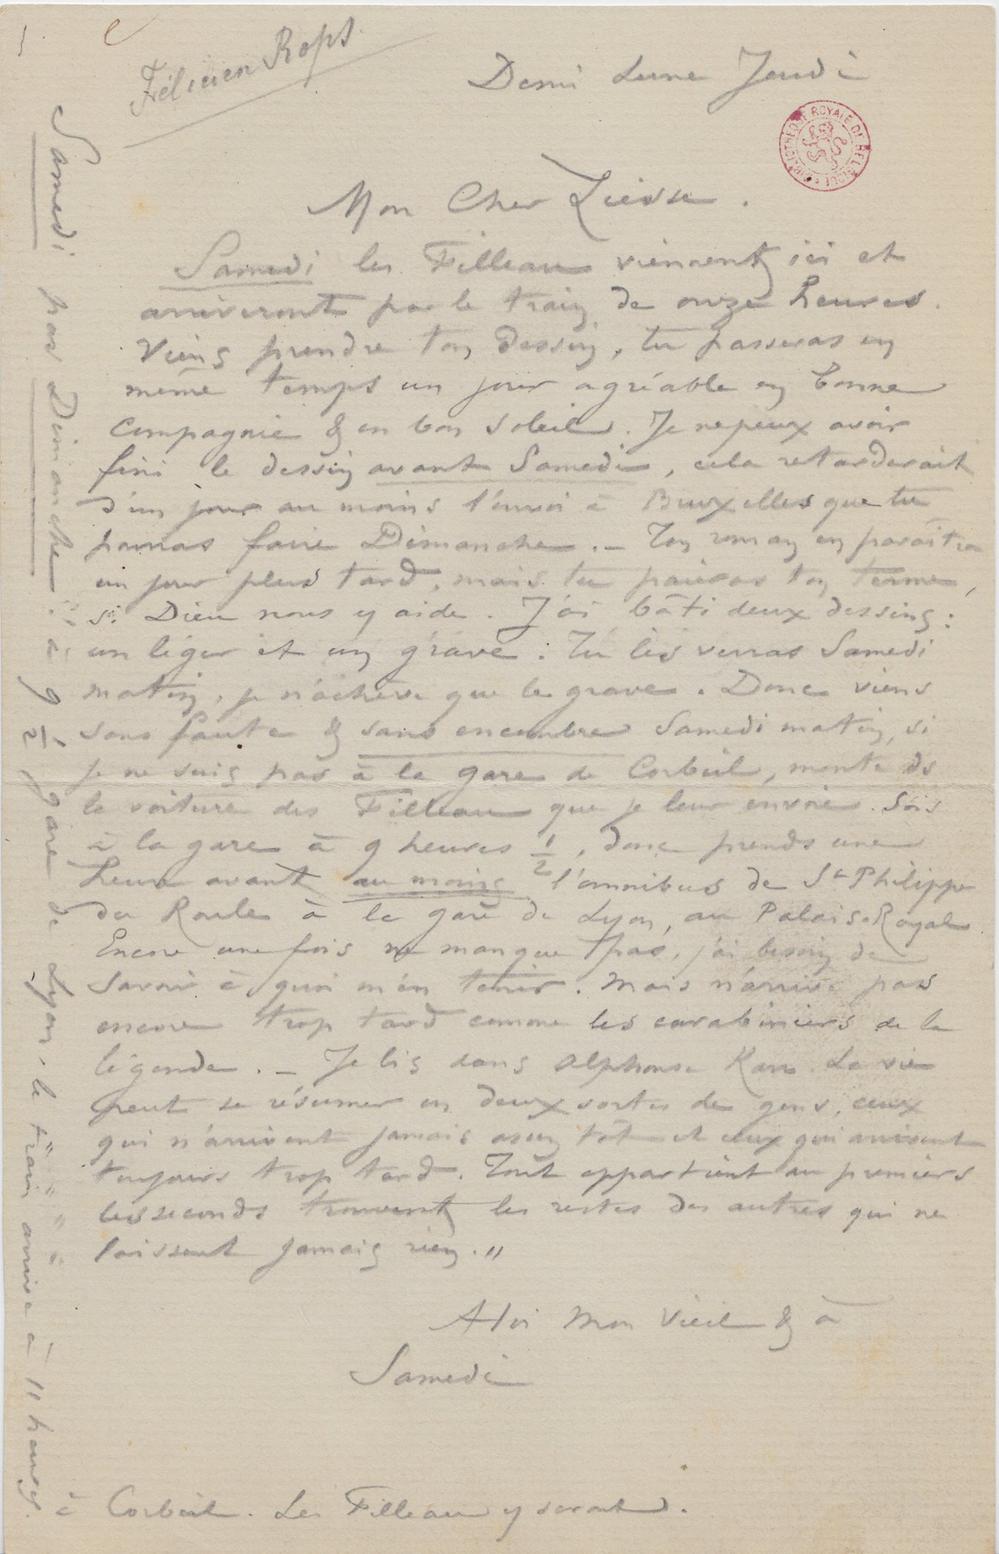 Félicien Rops
Demi Lune Jeudi
BIBLIOTHÈQUE ROYALE DE BELGIQUE
Mon Cher Liesse.
Samedi les Filleau viennent ici et
arriveront par le train de onze heures.
Viens prendre ton dessin, tu passeras en
même temps un jour agréable en bonne
compagnie & en bon soleil. Je ne peux avoir
fini le dessin avant Samedi, cela retarderait
d'un jour au moins l'envoi à Bruxelles que tu
pourras faire Dimanche. – Ton roman en paraîtra
un jour plus tard, mais tu paieras ton terme,
si Dieu nous y aide. J'ai bâti deux dessins:
un léger et un grave: Tu les verras Samedi
matin, je n'achève que le grave. Donc viens
sans faute & sans encombre Samedi matin, si
je ne suis pas à la gare de Corbeil, monte ds
la voiture des Filleau que je leur envoie. Sois
à la gare à 9 heures 1/2, donc prends une
heure avant au moins l'omnibus de St Philippe
du Roule à la gare de Lyon, au Palais-Royal.
Encore une fois ne manque pas, j'ai besoin de
savoir à quoi m'en tenir. Mais n'arrive pas
encore trop tard comme les carabiniers de la
légende. – Je lis dans Alphonse Karr. La vie
peut se résumer en deux sortes de gens, ceux
qui n'arrivent jamais assez tôt et ceux qui arrivent
toujours trop tard. Tout appartient au premiers
les seconds trouvent les restes des autres qui ne
laissent jamais rien."
A toi mon vieil & à
Samedi
Samedi pas Dimanche!! à 9 1/2 gare de Lyon, le train arrive à 11 heures
à Corbeil. Les Filleau y seront.